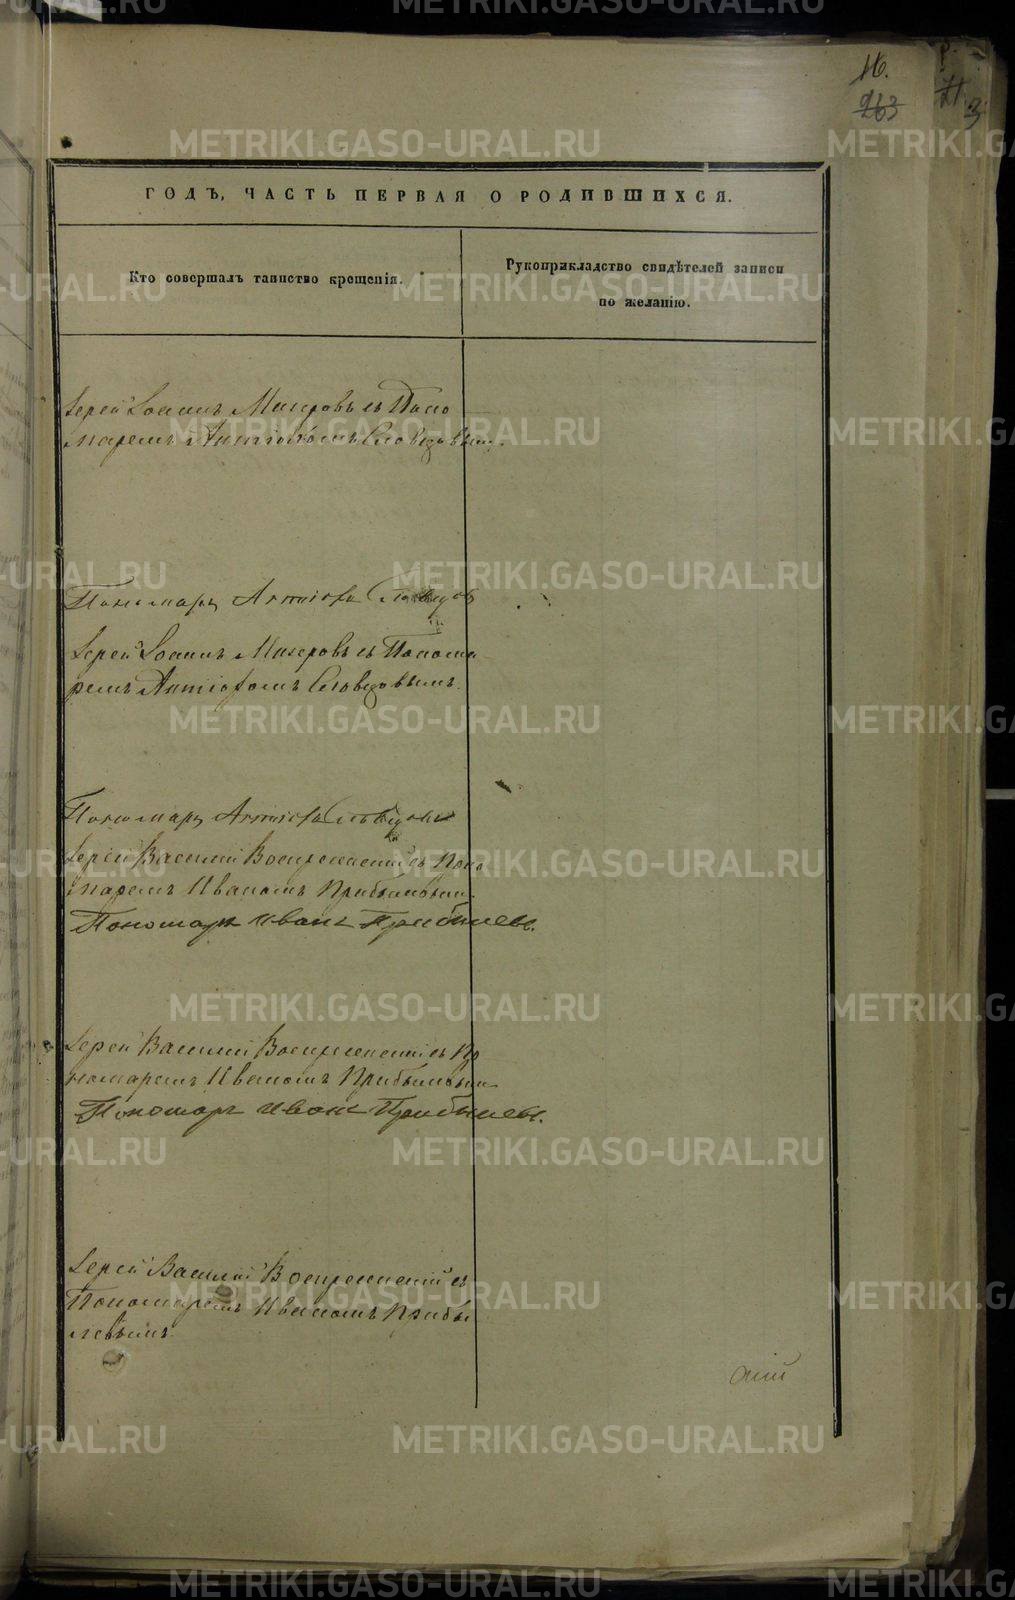 16.
263
71
3
ГОДЪ, ЧАСТЬ ПЕРВАЯ О РОДИВШИХСЯ.
Кто совершалъ таинство крещенія.
Рукоприкладство свидѣтелей записи
по желанію.
Іерей Іоаннъ Мизеровъ съ Поно
маремъ Антіохомъ Словцовымъ.
Пономарь Антіохъ Словцовъ
Іерей Іоаннъ Мизеровъ съ Понома
ремъ Антіохомъ Словцовымъ.
Пономарь Антіохъ Словцовъ
Іерей Василій Воскресенскій съ Поно
маремъ Иваномъ Прибылевымъ.
Пономарь Иванъ Прибылевъ.
Іерей Василій Воскресенскій съ По
номаремъ Иваномъ Прибылевымъ
Пономарь Иванъ Прибылевъ.
Іерей Василій Воскресенскій съ
Пономаремъ Иваномъ Прибы
левымъ.
METRIKI.GASO-URAL.RU